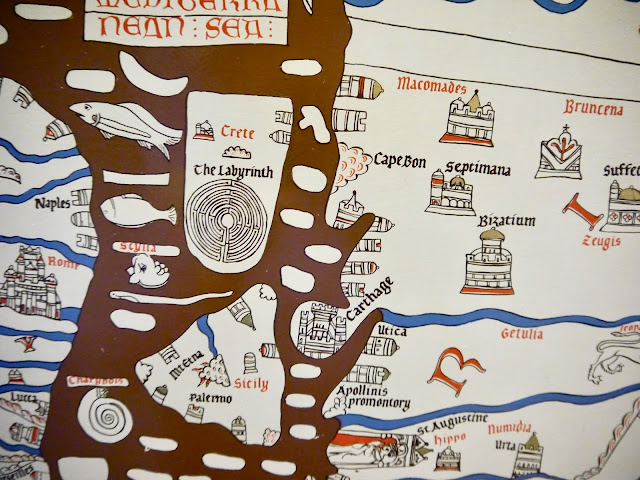 MEDITERRA
NEAN : SEA :
Macomades
Bruncena
Crete
Cape Bon
Septimana
Suffec
The Labyrinth
Naples
Bizatium
Zeugis
Scylla
Rome
Carthage
Utica
Getulia
Mt Etna
Sicily
Charybdis
Lucca
Palermo
Apollinis
promontory
St Augustine
hippo
Numudia
Urta